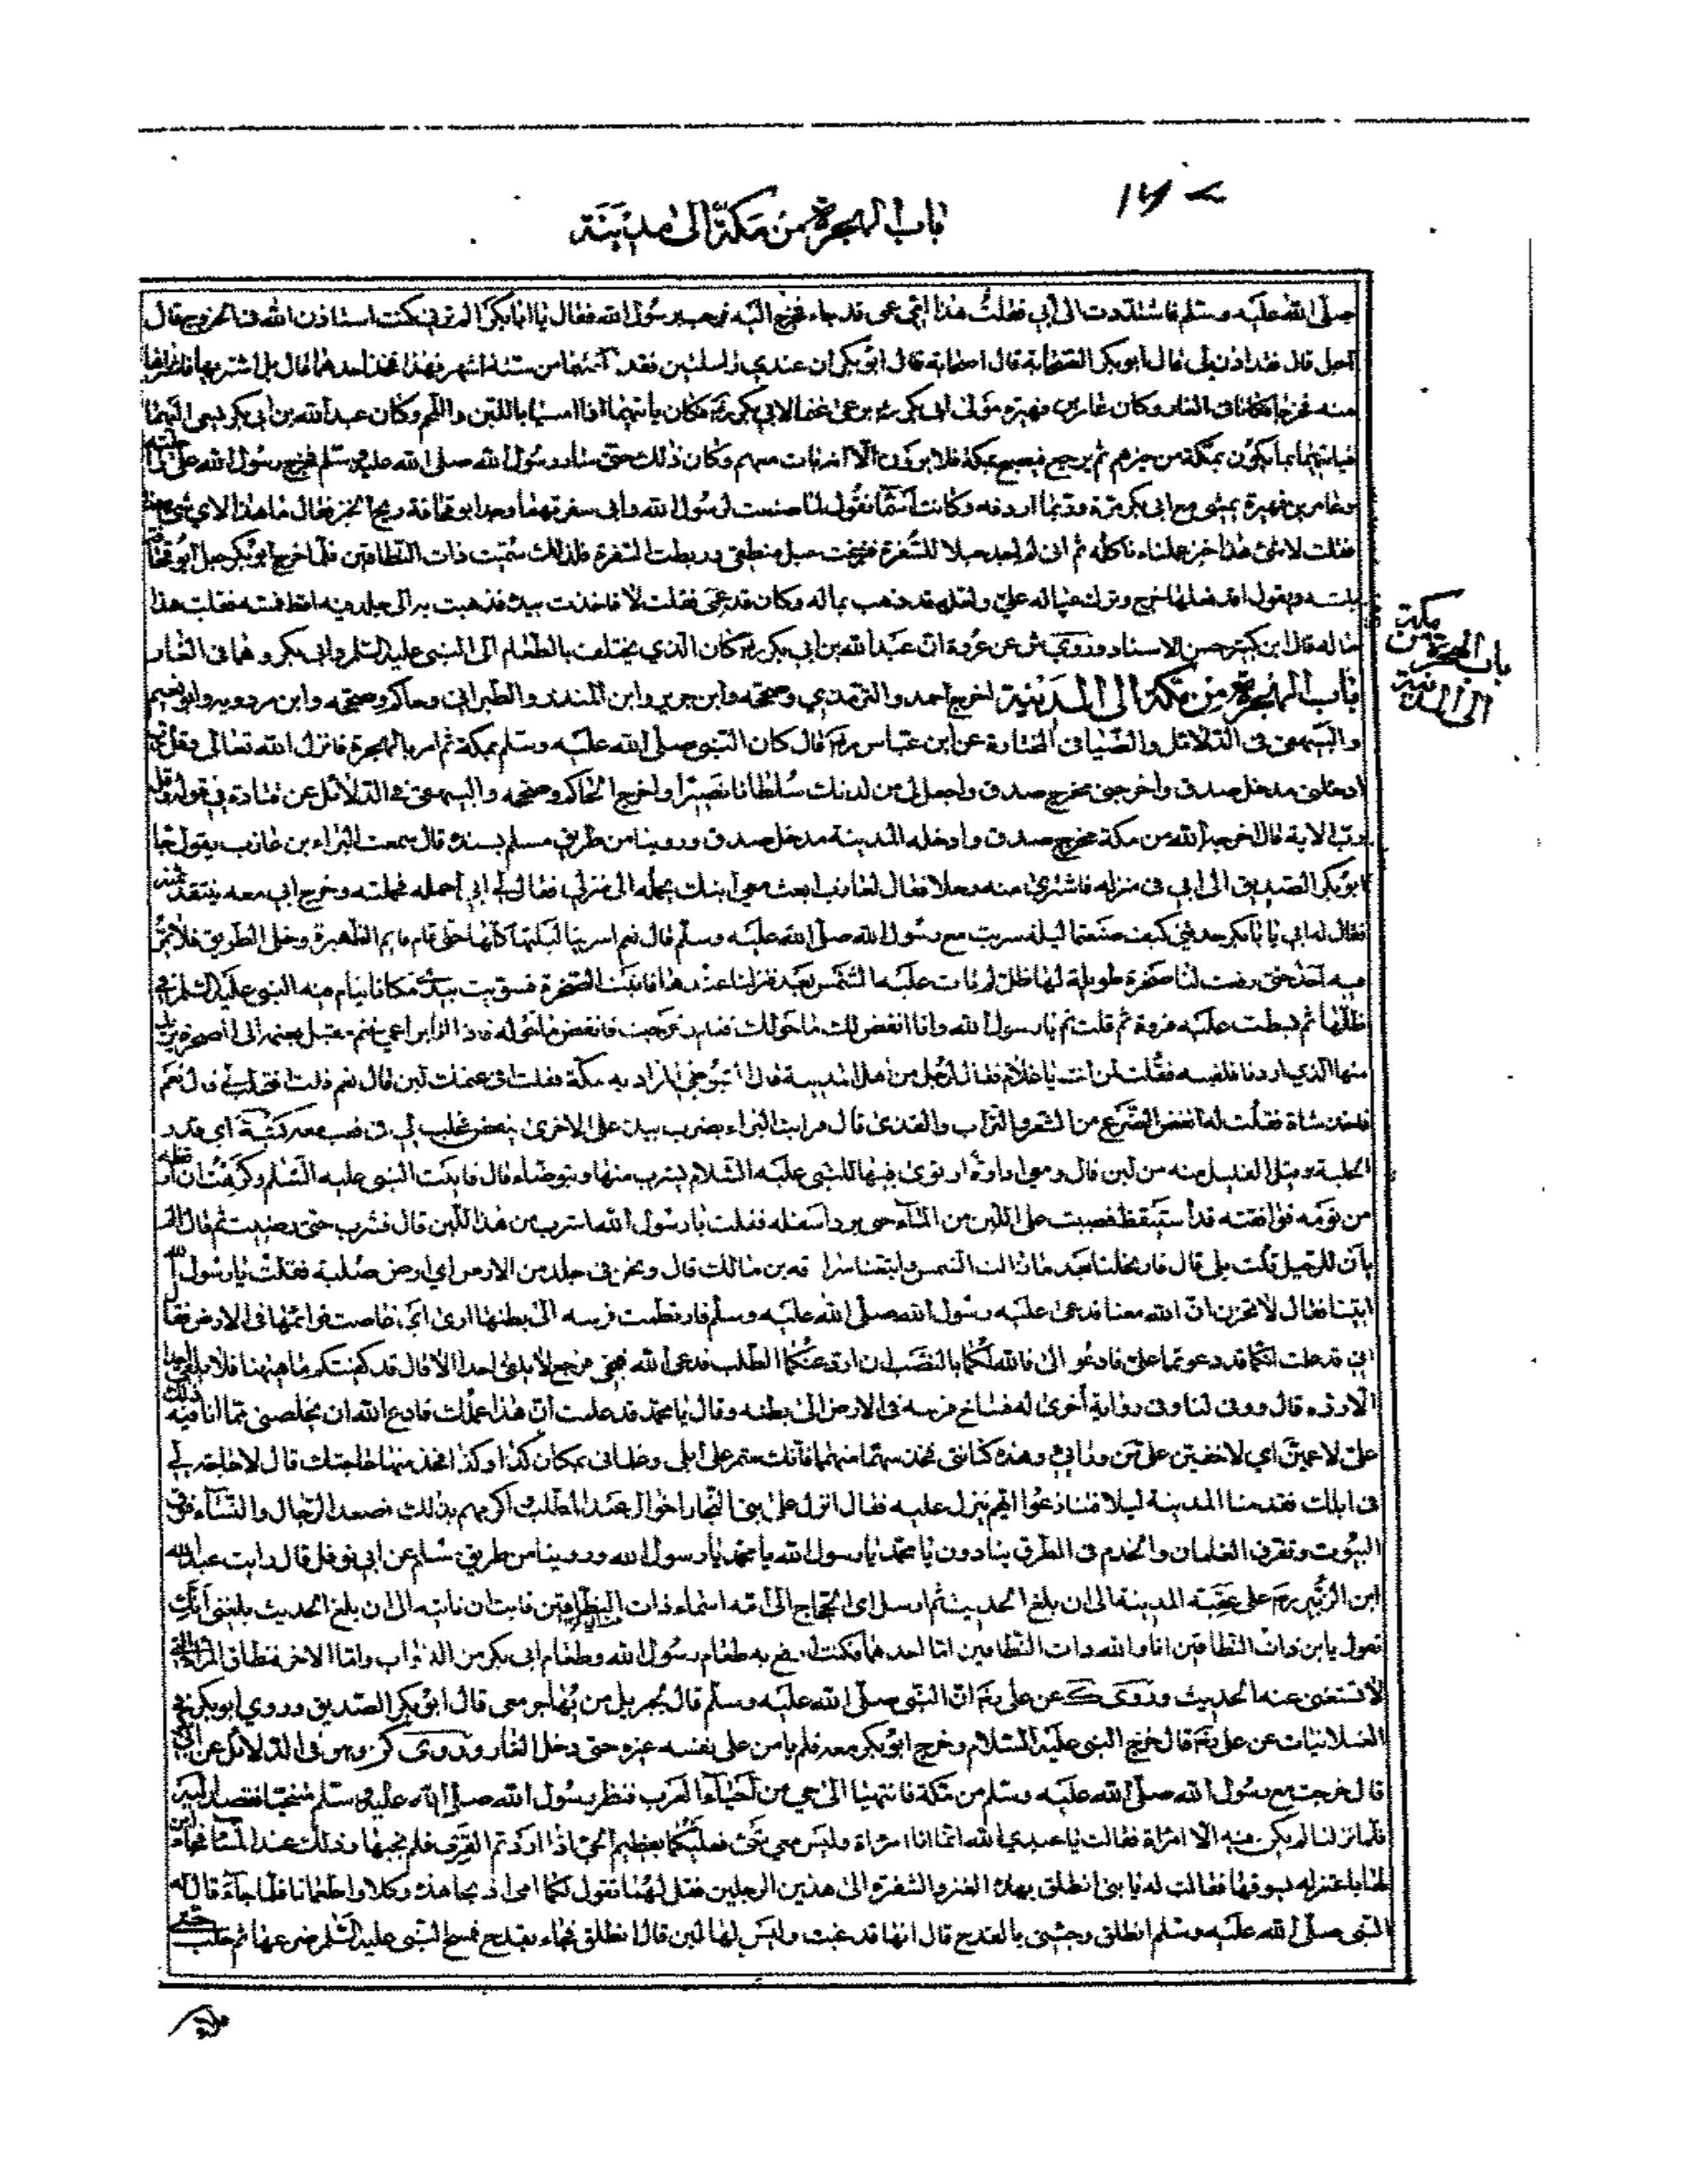 باب الهجرة من مكة الى مدينة
صلى الله عليه وسلم فاشتددت الى أبي فقلت هذا عمي قد جاء فخرج اليه فرحب برسول الله فقال يا ابا بكر الم ترني كنت استاذن الله في الخروج قال
اجل قال فقد اذن لي قال ابو بكر الصحابة قال الصحابة قال ابو بكر ان عندي راحلتين فقد من ستة اشهر لهذا فخذ احدهما قال بل اشتريها
منه فخرجا فكانا في الغار وكان عامر بن فهيرة مولى ابي بكر يرعى غنما لابي بكر فكان يأتيهما اذا امسيا باللبن واللحم وكان عبد الله بن أبي بكر يسعى اليهما
فيأتيهما بما يكون بمكة من خبرهم ثم يرجع فيصبح بمكة فلا يرون الا انه بات معهم وكان ذلك حتى سار رسول الله صلى الله عليه وسلم فخرج رسول الله على
وعامر بن فهيرة يمشي مع ابي بكر مرة وربما اردفه وكانت أسما تقول لما صنعت لرسول الله وأبي سفرتهما وجد ابو قحافة ريح الخبز فقال ما هذا لاي شئ
فقلت لا شئ هذا خبز عملناه نأكله ثم اني لم اجد حبلا للسفرة فنزعت حبل منطقي وربطت السفرة فلذلك سميت ذات النطاقين فلما خرج ابو بكر جعل ابو قحافة
ويقول خرج وترك عياله علي ولعله قد ذهب بماله وكان قد عمي فقلت لا فاخذت بيده فذهبت به الى جلد فيه اقط فمسه فقلت هذا
ماله قال ابن كثير حسن الاسناد وروي ش عن عروة ان عبد الله بن أبي بكر كان الذي يختلف بالطعام الى النبي عليه السلم وابي بكر وهما في الغار
باب الهجرة من مكة الى المدينة اخرج احمد والترمذي وصححه وابن جرير وابن المنذر والطبراني وحاكم وصححه وابن مردويه وابو نعيم
والبيهقي في الدلائل والضيا في المختارة عن ابن عباس قال كان النبي صلى الله عليه وسلم بمكة ثم امر بالهجرة فانزل الله تعالى وقل رب
ادخلني مدخل صدق واخرجني مخرج صدق واجعل لي من لدنك سلطانا نصيرا واخرج الحاكم وصححه والبيهقي في الدلائل عن قتادة في قوله وقل
رب الاية قال اخرجه الله من مكة مخرج صدق وادخله المدينة مدخل صدق وروينا من طريق مسلم بسنده قال سمعت البراء بن عازب يقول جا
ابو بكر الصديق الى ابي في منزله فاشترى منه رحلا فقال لعازب ابعث معي ابنك يحمله الى منزلي فقال لي أبي احمله فحملته وخرج ابي معه ينتقد ثمنه
فقال له ابي يا ابا بكر حدثني كيف صنعتما ليلة سريت مع رسول الله صلى الله عليه وسلم قال نعم اسرينا ليلتنا كلها حتى قام قايم الظهيرة وخلى الطريق فلا يمر
فيه احد حتى رفعت لنا صخرة طويلة لها ظل لم تات عليه الشمس بعد فنزلنا عندها فاتيت الصخرة فسويت بيدي مكانا ينام فيه النبي عليه السلم في
ظلها ثم بسطت عليه فروة ثم قلت نم يا رسول الله وانا انفض لك ما حولك فنام وخرجت انفض ما حوله فاذا انا براعي غنم مقبل بغنمه الى الصخرة يريد
منها الذي اردنا فلقيته فقلت لمن انت يا غلام فقال لرجل من اهل المدينة قال البغوي اراد به مكة قلت افي غنمك لبن قال نعم قلت افتحلب لي قال نعم
فاخذ شاة فقلت له انفض الضرع من الشعر والتراب والقذى قال فرايت البراء يضرب بيده على الاخرى ينفض فحلب لي في قعب معه كثبة اي قدر
الحلبة وقيل القليل منه من لبن قال ومعي اداوة ارتوي فيها للنبي عليه السلام ليشرب منها ويتوضاء قال فاتيت النبي عليه السلم وكرهت ان اوقظه
من نومه فوافقته قد استيقظ فصببت على اللبن من الماء حتى برد اسفله فقلت يا رسول الله اشرب من هذا اللبن قال فشرب حتى رضيت ثم قال الم
يان للرحيل قلت بلى قال فارتحلنا بعد ما زالت الشمس واتبعنا سراقة بن مالك قال ونحن في جلد من الارض اي ارض صلبة فقلت يا رسول الله
اتينا فقال لا تحزن ان الله معنا فدعى عليه رسول الله صلى الله عليه وسلم فارتطمت فرسه الى بطنها ارى اي غاصت قوائمها في الارض فقال
اني قد علمت انكما قد دعوتما علي فادعوا لي فالله لكما بالنصب ان ارد عنكما الطلب فدعى الله فنجى فرجع لا يلقى احدا الا قال قد كفيتكم ما ههنا فلا يلقى احدا
الا رده قال ووفى لنا وفي رواية أخرى له فساخ فرسه في الارض الى بطنه وقال يا محمد قد علمت ان هذا عملك فادع الله ان يخلصني مما انا فيه
علي لاعمين اي لاخفين على من ورائي وهذه كنانتي فخذ سهما منها فانك ستمر على ابلي وغلماني بمكان كذا وكذا فخذ منها حاجتك قال لا حاجة لي
في ابلك فقدمنا المدينة ليلا فتنازعوا ايهم ينزل عليه فقال انزل على بني النجار اخوال عبد المطلب اكرمهم بذلك فصعد الرجال والنساء فوق
البيوت وتفرق الغلمان والخدم في الطرق ينادون يا محمد يا رسول الله يا محمد يا رسول الله وروينا من طريق مسلم عن ابي نوفل قال رايت عبد الله
ابن الزبير على عقبة المدينة الى ان بلغ الحديث ثم ارسل اي الحجاج الى امه اسماء ذات النطاقين فابت ان تاتيه الى ان بلغ الحديث بلغني أنك
تقول يا ابن ذات النطاقين انا والله ذات النطاقين اما احدهما فكنت ارفع به طعام رسول الله وطعام ابي بكر من الدواب واما الاخر فنطاق المرأة التي
لا تستغني عنه الحديث وروى ك عن علي ان النبي صلى الله عليه وسلم قال لجبريل من يهاجر معي قال ابو بكر الصديق وروي ابو بكر في
الغيلانيات عن علي قال خرج النبي عليه السلام وخرج ابو بكر معه فلم يامن على نفسه غيره حتى دخل الغار وروى في الدلائل عن
قال خرجت مع رسول الله صلى الله عليه وسلم من مكة فانتهينا الى حي من أحياء العرب فنظر رسول الله صلى الله عليه وسلم متنحيا فقصد اليه
فلما نزلنا لم يكن فيه الا امرأة فقالت يا عبدي الله انما انا امرأة وليس معي احد فعليكما بعظيم الحي اذا اردتم القرى فلم يجبها وذلك عند المسا فجاء ابن
لها باعنز له يسوقها فقالت له يا بني انطلق بهذه العنز والشفرة الى هذين الرجلين فقل لهما تقول لكما امي اذبحا هذه وكلا واطعمانا فلما جاء قال له
النبي صلى الله عليه وسلم انطلق وجئني بالقدح قال انها قد عزبت وليس لها لبن قال انطلق فجاء بقدح فمسح النبي عليه السلم ضرعها ثم حلب حتى
باب الهجرة من
مكة
الى المدينة